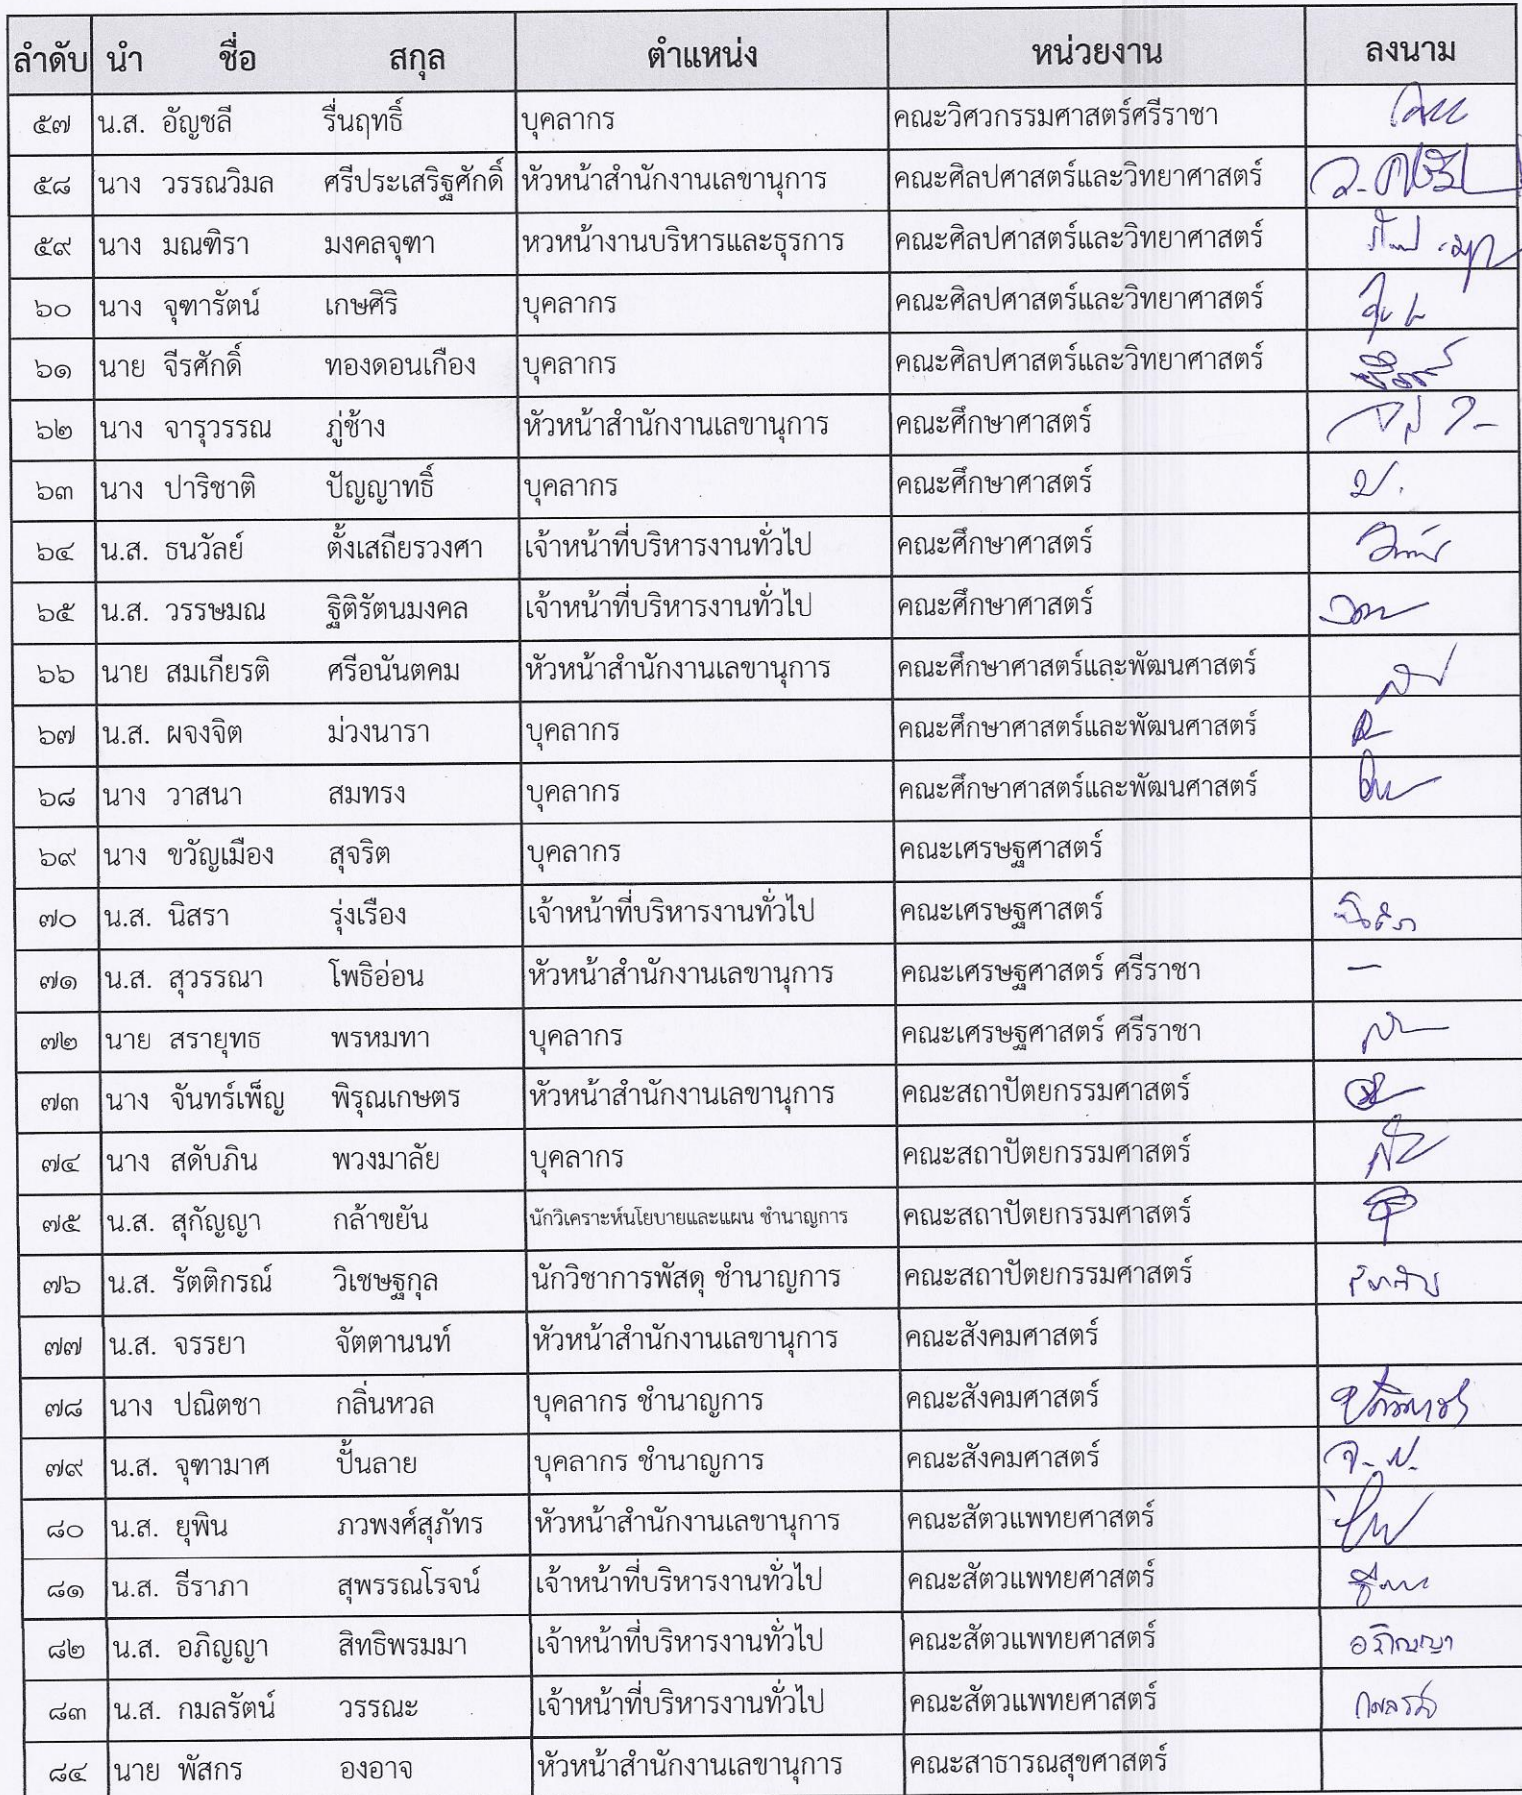 ลำดับ นำ ชื่อ สกุล ตำแหน่ง หน่วยงาน ลงนาม
๕๗ น.ส. อัญชลี รื่นฤทธิ์ บุคลากร คณะวิศวกรรมศาสตร์ศรีราชา
๕๘ นาง วรรณวิมล ศรีประเสริฐศักดิ์ หัวหน้าสำนักงานเลขานุการ คณะศิลปศาสตร์และวิทยาศาสตร์
๕๙ นาง มณฑิรา มงคลจุฑา หวหน้างานบริหารและธุรการ คณะศิลปศาสตร์และวิทยาศาสตร์
๖๐ นาง จุฑารัตน์ เกษศิริ บุคลากร คณะศิลปศาสตร์และวิทยาศาสตร์
๖๑ นาย จีรศักดิ์ ทองดอนเกือง บุคลากร คณะศิลปศาสตร์และวิทยาศาสตร์
๖๒ นาง จารุวรรณ ภู่ช้าง หัวหน้าสำนักงานเลขานุการ คณะศึกษาศาสตร์
๖๓ นาง ปาริชาติ ปัญญาทธิ์ บุคลากร คณะศึกษาศาสตร์ ป.
๖๔ น.ส. ธนวัลย์ ตั้งเสถียรวงศา เจ้าหน้าที่บริหารงานทั่วไป คณะศึกษาศาสตร์
๖๕ น.ส. วรรษมณ ฐิติรัตนมงคล เจ้าหน้าที่บริหารงานทั่วไป คณะศึกษาศาสตร์
๖๖ นาย สมเกียรติ ศรีอนันตคม หัวหน้าสำนักงานเลขานุการ คณะศึกษาศาสตร์และพัฒนศาสตร์
๖๗ น.ส. ผจงจิต ม่วงนารา บุคลากร คณะศึกษาศาสตร์และพัฒนศาสตร์
๖๘ นาง วาสนา สมทรง บุคลากร คณะศึกษาศาสตร์และพัฒนศาสตร์
๖๙ นาง ขวัญเมือง สุจริต บุคลากร คณะเศรษฐศาสตร์
๗๐ น.ส. นิสรา รุ่งเรือง เจ้าหน้าที่บริหารงานทั่วไป คณะเศรษฐศาสตร์
๗๑ น.ส. สุวรรณา โพธิอ่อน หัวหน้าสำนักงานเลขานุการ คณะเศรษฐศาสตร์ ศรีราชา –
๗๒ นาย สรายุทธ พรหมทา บุคลากร คณะเศรษฐศาสตร์ ศรีราชา
๗๓ นาง จันทร์เพ็ญ พิรุณเกษตร หัวหน้าสำนักงานเลขานุการ คณะสถาปัตยกรรมศาสตร์
๗๔ นาง สดับภิน พวงมาลัย บุคลากร คณะสถาปัตยกรรมศาสตร์
๗๕ น.ส. สุกัญญา กล้าขยัน นักวิเคราะห์นโยบายและแผน ชำนาญการ คณะสถาปัตยกรรมศาสตร์
๗๖ น.ส. รัตติกรณ์ วิเชษฐกุล นักวิชาการพัสดุ ชำนาญการ คณะสถาปัตยกรรมศาสตร์
๗๗ น.ส. จรรยา จัตตานนท์ หัวหน้าสำนักงานเลขานุการ คณะสังคมศาสตร์
๗๘ นาง ปณิตชา กลิ่นหวล บุคลากร ชำนาญการ คณะสังคมศาสตร์
๗๙ น.ส. จุฑามาศ ปั้นลาย บุคลากร ชำนาญการ คณะสังคมศาสตร์ จ. ป.
๘๐ น.ส. ยุพิน ภวพงศ์สุภัทร หัวหน้าสำนักงานเลขานุการ คณะสัตวแพทยศาสตร์
๘๑ น.ส. ธีราภา สุพรรณโรจน์ เจ้าหน้าที่บริหารงานทั่วไป คณะสัตวแพทยศาสตร์
๘๒ น.ส. อภิญญา สิทธิพรมมา เจ้าหน้าที่บริหารงานทั่วไป คณะสัตวแพทยศาสตร์ อภิญญา
๘๓ น.ส. กมลรัตน์ วรรณะ เจ้าหน้าที่บริหารงานทั่วไป คณะสัตวแพทยศาสตร์
๘๔ นาย พัสกร องอาจ หัวหน้าสำนักงานเลขานุการ คณะสาธารณสุขศาสตร์